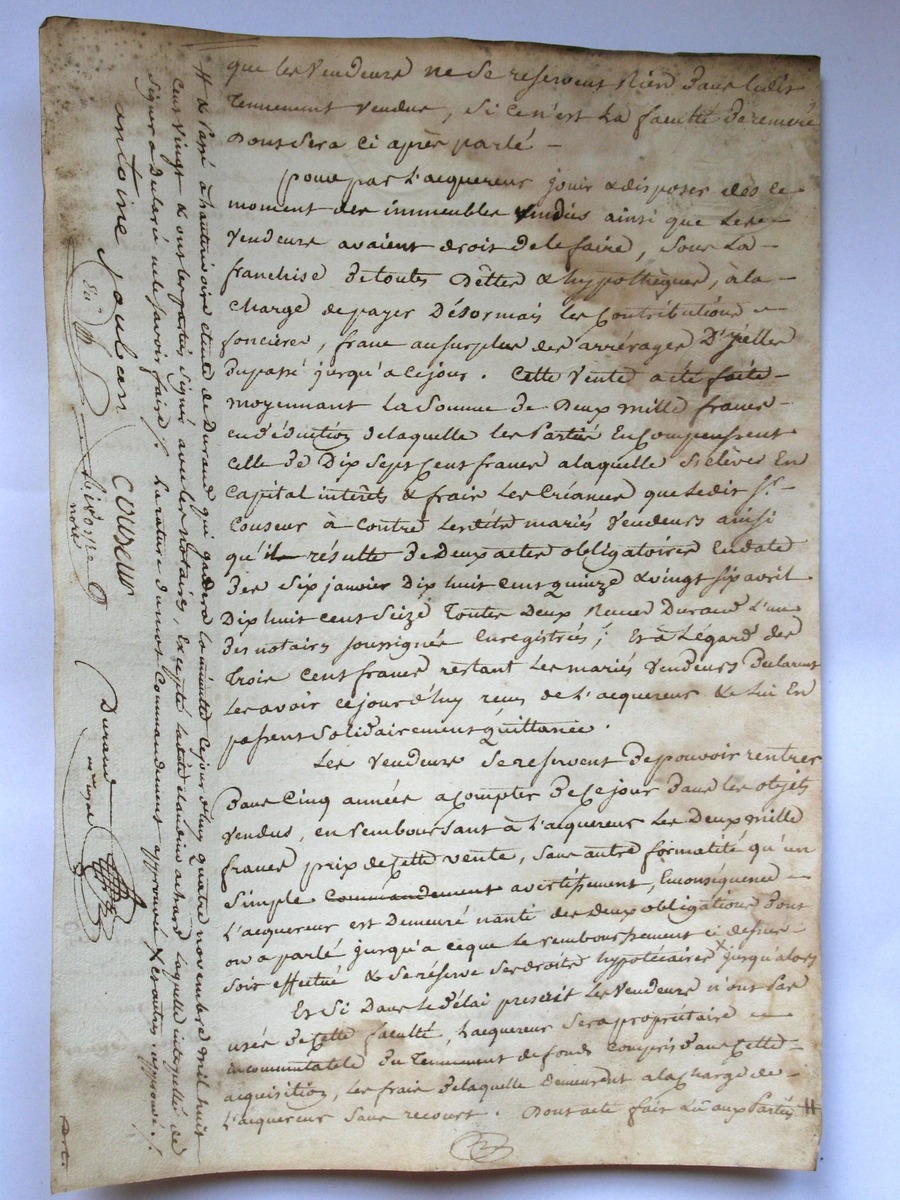 que les Vendeurs ne se reservent Rien dans ledit
Tennement Vendus, si ce n'est La faculté de reméré
Dont sera ci après parlé -
pour par L'acquereur jouir & disposer dès ce
moment des immeubles Vendues ainsi que les
Vendeurs avaient droit de le faire, sous La
franchise de toutes Dêttes & hypothèques, à la
charge de payer Désormais les contributions
foncières, franc au surplus des arrérages D'yčelles
Du passé jusqu'a ce jour. Cette Vente a été faite
moyennant La somme de Deux mille francs
en déduction de laquelle les Parties En Compensent
celle de Dix Sept Cent francs a laquelle s'elève En
Capital interêts & frais Les Créances que Ledit Sr.
Couseur à contre Lesdits mariés Vendeurs ainsi
qu'il résulte de Deux actes obligatoires En date
des Six janvier Dix huit cent quinze & vingt six avril
Dix huit cent Seize Toutes Deux Reçues Durand L'un
des notaires soussignés Enregistrées; Et à L'égard des
Trois Cent francs restant Les mariés Vendeurs Declarent
Les avoir ce jourd'huy reçus de L'acquereur & Lui En
passent Solidairement Quittance.
Les Vendeurs se reservent de pouvoir rentrer
Dans Cinq années a compter de ce jour Dans les objets
Vendus, en remboursant à L'acquereur Les Deux mille
francs prix de cette vente, sans autre formalité qu'un
Simple Commandement avertissement, En conséquence
L'acquereur est Demeuré nanti des deux obligations Dont
on a parlé jusqu'a ce que Le remboursement ci dessus
soit effectué & se réserve ses droits hypotécaires X jusqu'alors
Et Si Dans Le Délai prescrit Les Vendeurs n'ont Pas
usés de cette faculté, L'acquereur sera propriétaire
incommutable du Tennement de fonds compris dans cette
acquisition, les frais de laquelle Demeurent a la Charge de
L'acquereur sans recours. Dont acte fait Lû aux Parties #
# & Passé à hauterivoire etude de Durand qui gardera La minute Ce jourd'huy quatre novembre mil huit
Cent Vingt & ont les parties signés avec les notaires, Excepté ladite Claudine achard Laquelle interpellée de
Signer a Declaré ne le savoir faire /. La rature du mot Commandement approuvée X et autres. approuvé /.
antoine COUSEUR
Durand
notre